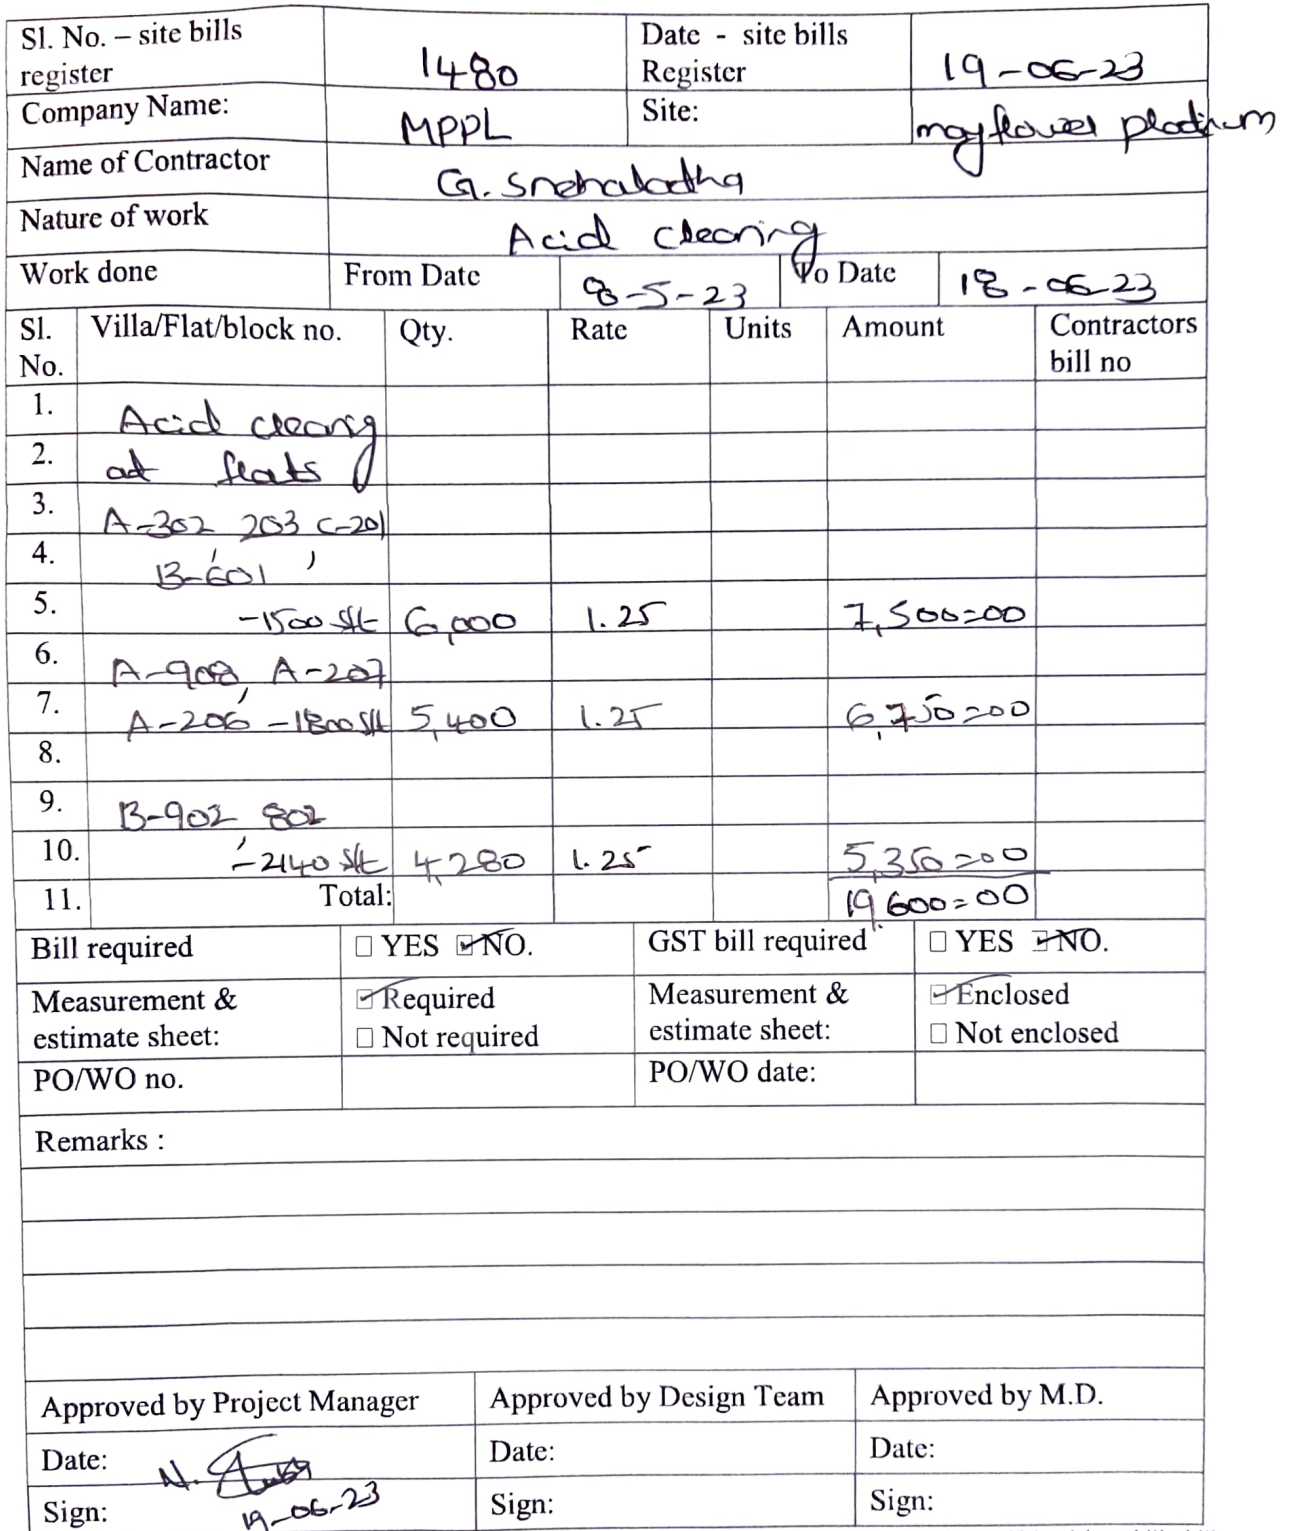 Sl. No. – site bills register 1480 Date - site bills Register 19-06-23
Company Name: MPPL Site: mayflower platinum
Name of Contractor G. Snehalatha
Nature of work Acid cleaning
Work done From Date 8-5-23 To Date 18-06-23
Sl. No. Villa/Flat/block no. Qty. Rate Units Amount Contractors bill no
1. Acid cleaning
2. at flats
3. A-302, 203, C-201
4. B-601
5. -1500 Sft 6,000 1.25 7,500=00
6. A-908, A-207
7. A-206 -1800 Sft 5,400 1.25 6,750=00
8.
9. B-902, 802
10. -2140 Sft 4,280 1.25 5,350=00
11. Total: 19,600=00
Bill required ☐ YES ☑ NO. GST bill required ☐ YES ☑ NO.
Measurement & estimate sheet: ☑ Required ☐ Not required Measurement & estimate sheet: ☑ Enclosed ☐ Not enclosed
PO/WO no. PO/WO date:
Remarks :
Approved by Project Manager Approved by Design Team Approved by M.D.
Date: N. Date: Date:
Sign: 19-06-23 Sign: Sign: